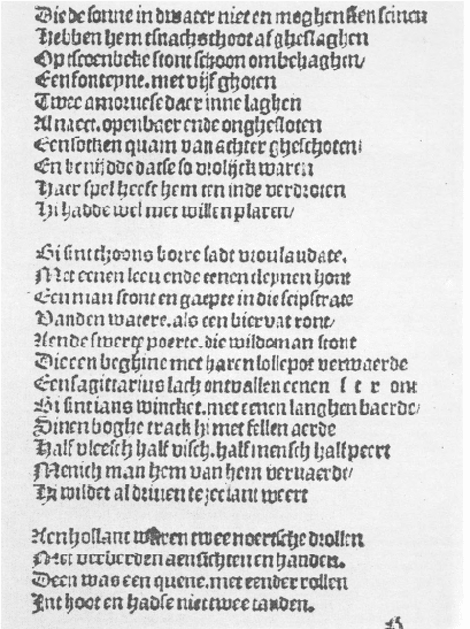 Die de sonne in dwater niet en moghen sien scinen
Hebben hem tsnachs thoot af gheslaghen
Op tscoenbeke stont schoon ombehaghen/
Een fonteyne. met vijf ghoten
Twee amoruese daer inne laghen
Al naect. openbaer ende onghesloten
Een sotken quam van achter gheschoten/
En benijdde datse so vrolijck waren
Haer spel heeft hem ten inde verdroten
Hi hadde wel met willen paren/

Bi sint choons borre sadt vrou laudate.
Met eenen leeu ende eenen cleynen hont
Een man stont en gaepte in die scipstrate
Vanden watere. als een bier vat ront/
Aende swerte poerte. die wildeman stont
Die een beghine met haren lollepot verwaerde
Een sagittarius lach ontvallen eenen stront
Bi sint ians wincket. met eenen langhen baerde/
Sinen boghe track hi met fellen aerde
Half vleesch half visch. half mensch half peert
Menich man hem van hem vervaerde/
Hi wildet al driuen te zeelant weert

Aen hollant waren twee noertsche drollen
Met verberden aensichten en handen.
Deen was een quene. met eender rollen
Int hoot en hadse niet twee tanden.